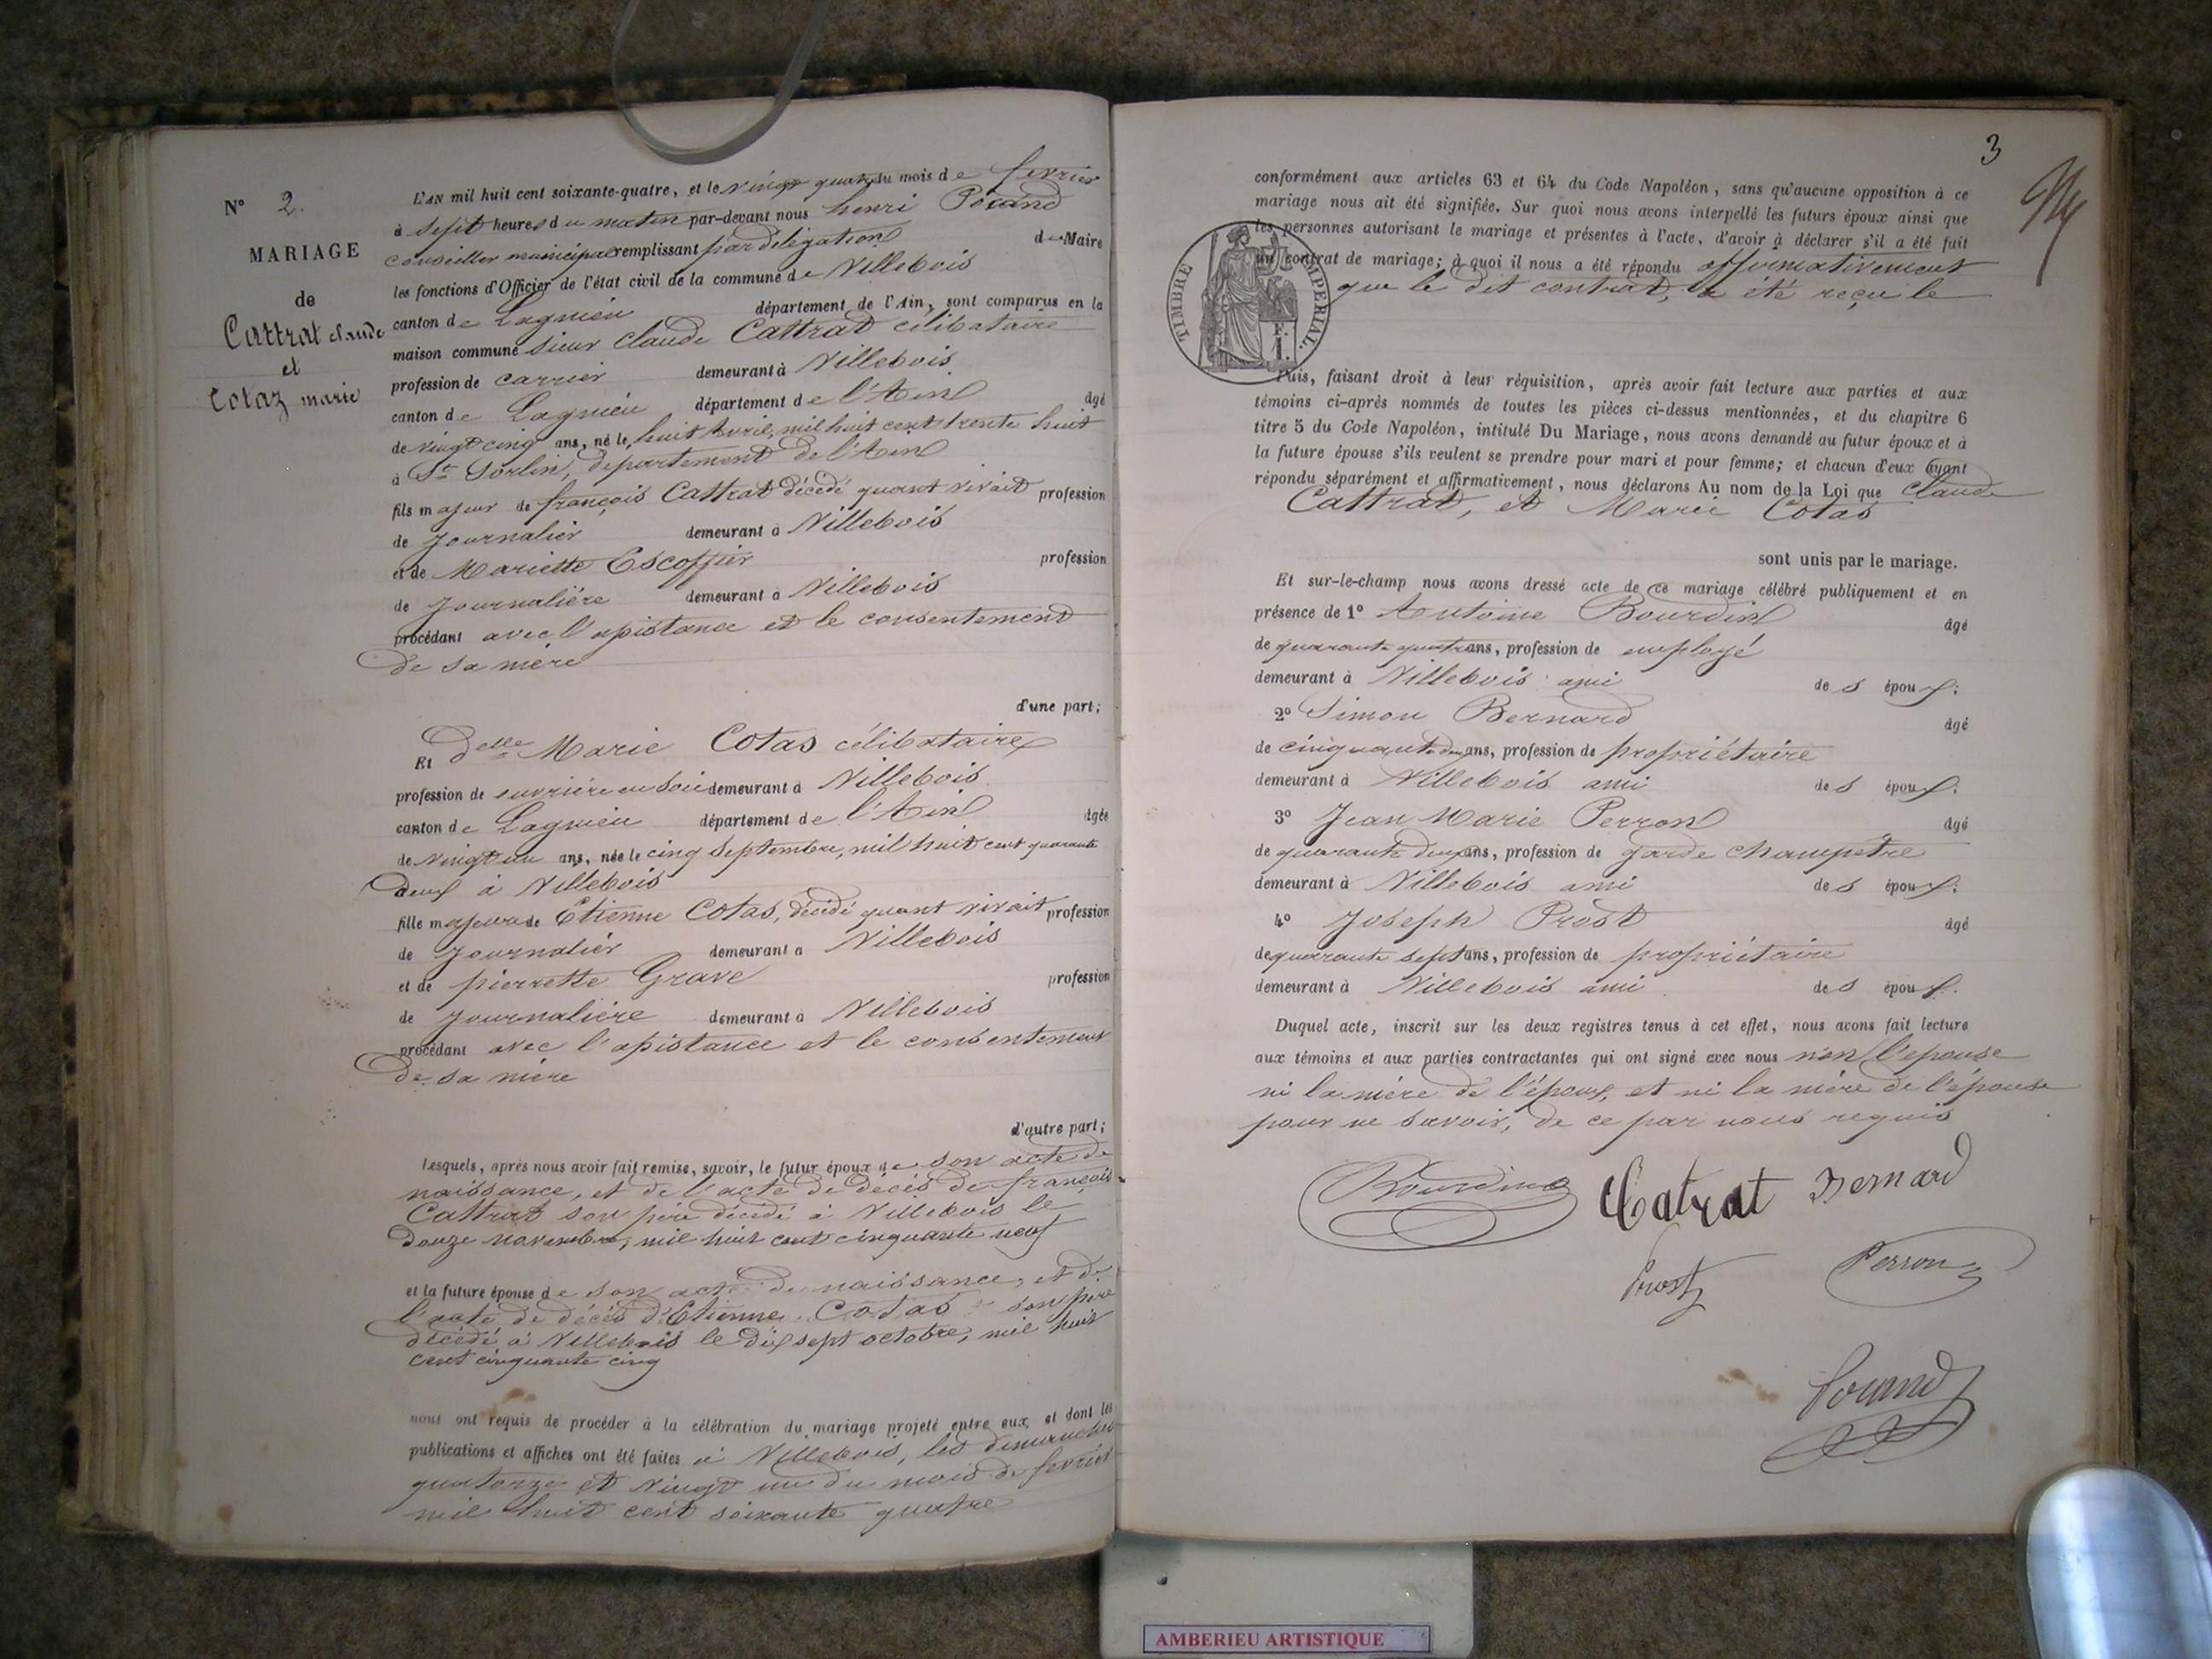 N° 2.
MARIAGE
de
Cattrat claude
et
Cotaz marie
L'AN mil huit cent soixante-quatre, et le vingt quatre du mois de fevrier
à sept heures du matin par-devant nous henri Pocand
conseiller municipal remplissant par délégation du Maire
les fonctions d'Officier de l'état civil de la commune de Villebois
canton de Lagnieu département de l'Ain, sont comparus en la
maison commune sieur Claude Cattrat célibataire
profession de carrier demeurant à Villebois
canton de Lagnieu département de l'Ain âgé
de vingt cinq ans, né le huit Avril, mil huit cent trente huit
à St Sorlin, département de l'Ain
fils majeur de françois Cattrat décédé quant vivait profession
de Journalier demeurant à Villebois
et de Mariette Escoffier profession
de Journalière demeurant à Villebois
procédant avec l'assistance et le consentement
de sa mère
d'une part;
Et Delle Marie Cotas célibataire
profession de ouvrière en soie demeurant à Villebois
canton de Lagnieu département de l'Ain âgée
de vingt un ans, née le cinq Septembre, mil huit cent quarante
deux à Villebois
fille majeure de Etienne Cotas, décédé quant vivait profession
de Journalier demeurant à Villebois
et de pierrette Grave profession
de Journalière demeurant à Villebois
procédant avec l'assistance et le consentement
de sa mère
d'autre part;
Lesquels, après nous avoir fait remise, savoir, le futur époux de son acte de
naissance, et de l'acte de décès de françois
Cattrat son père décédé à Villebois le
douze novembre, mil huit cent cinquante neuf
et la future épouse de son acte de naissance, et de
l'acte de décès d'Etienne Cotas son père
décédé à Villebois le dix sept octobre, mil huit
cent cinquante cinq
nous ont requis de procéder à la célébration du mariage projeté entre eux, et dont les
publications et affiches ont été faites à Villebois, les dimanches
quatorze et vingt un du mois de fevrier
mil huit cent soixante quatre
3
conformément aux articles 63 et 64 du Code Napoléon, sans qu'aucune opposition à ce
mariage nous ait été signifiée. Sur quoi nous avons interpellé les futurs époux ainsi que
les personnes autorisant le mariage et présentes à l'acte, d'avoir à déclarer s'il a été fait
un contrat de mariage; à quoi il nous a été répondu affirmativement
que le dit contrat, a été reçu le
TIMBRE IMPERIAL.
Puis, faisant droit à leur réquisition, après avoir fait lecture aux parties et aux
témoins ci-après nommés de toutes les pièces ci-dessus mentionnées, et du chapitre 6
titre 5 du Code Napoléon, intitulé Du Mariage, nous avons demandé au futur époux et à
la future épouse s'ils veulent se prendre pour mari et pour femme; et chacun d'eux ayant
répondu séparément et affirmativement, nous déclarons Au nom de la Loi que Claude
Cattrat, et Marie Cotas
sont unis par le mariage.
Et sur-le-champ nous avons dressé acte de ce mariage célébré publiquement et en
présence de 1° Antoine Bourdin âgé
de quarante quatre ans, profession de employé
demeurant à Villebois ami des époux;
2° Simon Bernard âgé
de cinquante deux ans, profession de propriétaire
demeurant à Villebois ami des époux;
3° Jean Marie Perron âgé
de quarante deux ans, profession de garde champêtre
demeurant à Villebois ami des époux;
4° Joseph Prost âgé
de quarante sept ans, profession de propriétaire
demeurant à Villebois ami des époux.
Duquel acte, inscrit sur les deux registres tenus à cet effet, nous avons fait lecture
aux témoins et aux parties contractantes qui ont signé avec nous non l'epouse
ni la mère de l'époux, et ni la mère de l'épouse
pour ne savoir, de ce par nous requis
Bourdin Catrat Bernard
Prost Perron
Pocand
AMBERIEU ARTISTIQUE